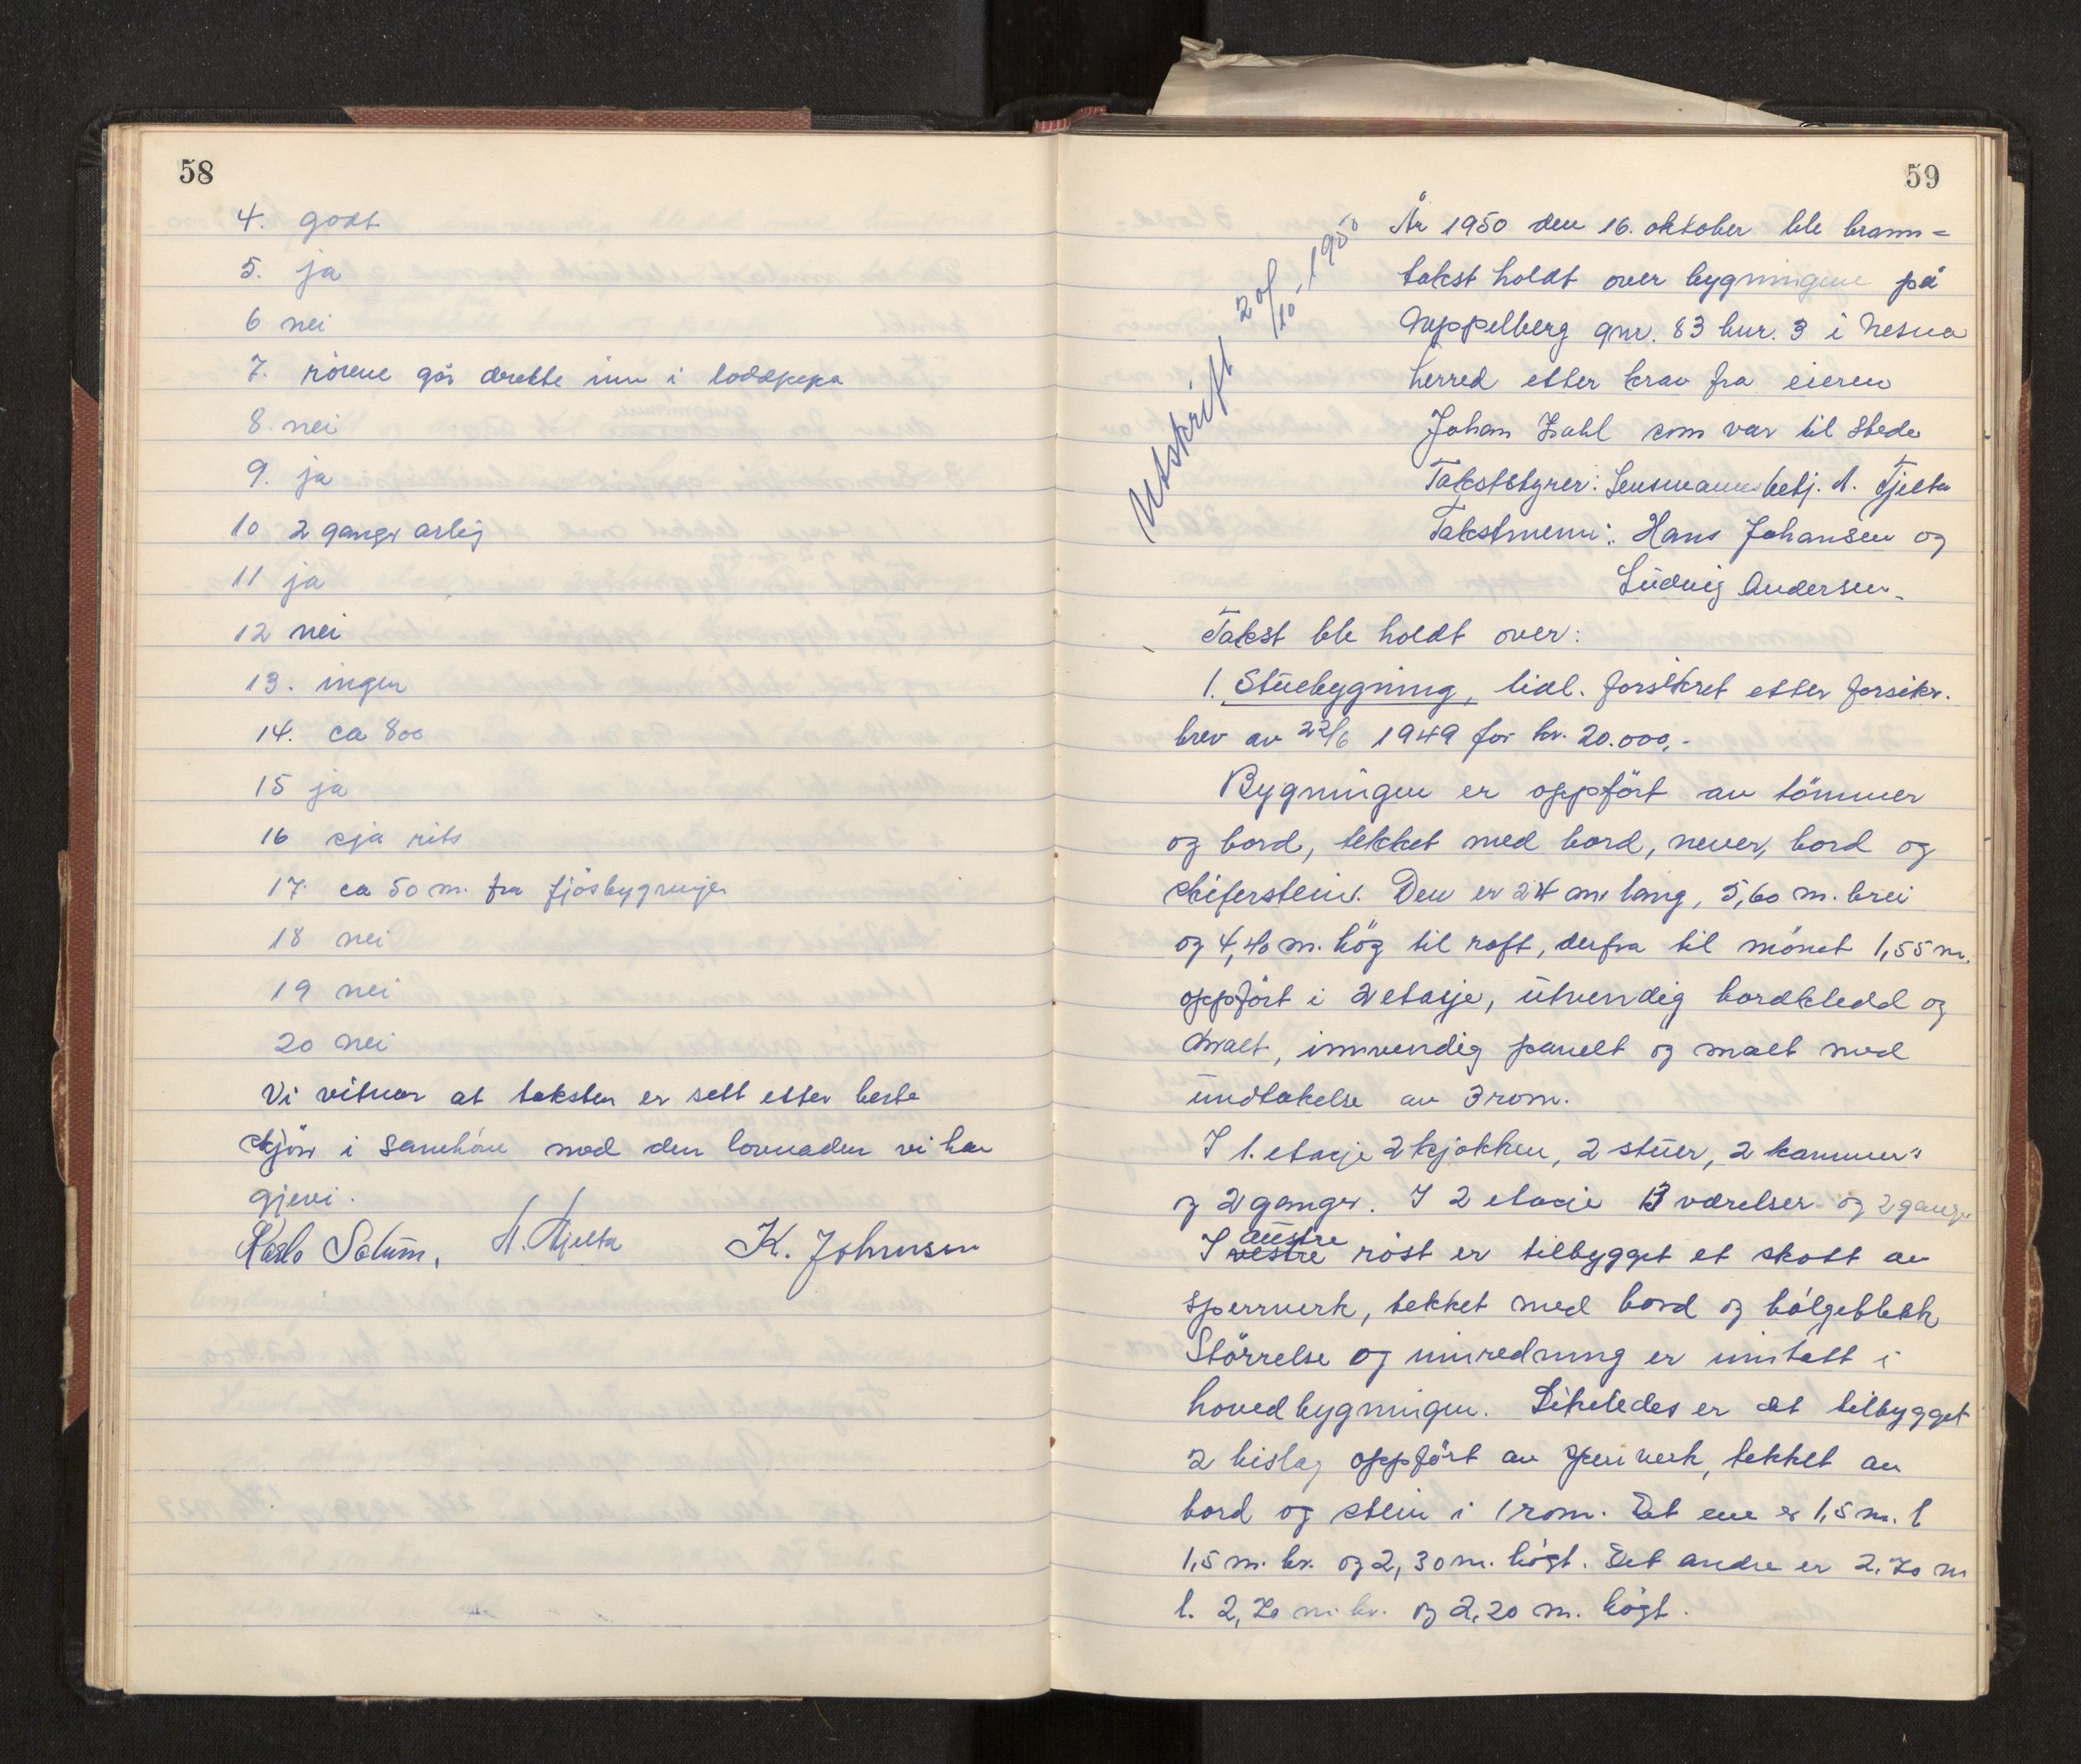 58
4. godt
5. ja
6 nei
7. rörene går drekte inn i loddpipa
8. nei
9. ja
10 2 ganger årlig
11 ja
12 nei
13. ingen
14. ca 800
15 ja
16 eja rits
17. ca 50 m. fra fjösbygninger
18 nei
19 nei
20 nei
Vi vitnar at taksten er sett etter beste
skjön i samhöve med den lovnaden vi har
gjevi.
Karlo Solum, A. Tjelta K. Johnsen
59
Utskrift 20/10-1950
År 1950 den 16. oktober ble brann=
takst holdt over bygningene på
Appelberg gnr. 83 bnr. 3 i Nesna
herred etter krav fra eieren
Johan Zahl som var til stede
Takststyrer: Lensmannsbetj. A. Tjelta
Takstmenn: Hans Johansen og
Ludvig Andersen.
Takst ble holdt over:
1. Stuebygning, tidl. forsikret etter forsikr.
brev av 22/6 1949 for kr. 20.000,-
Bygningen er oppfört av tömmer
og bord, tekket med bord, never, bord og
skiferstein. Den er 24 m lang, 5,60 m. brei
og 4,40 m. hög til raft, derfra til mönet 1,55 m.
oppfört i 2 etasje, utvendig bordkledd og
malt, innvendig panelt og malt med
undtakelse av 3 rom.
I 1. etasje 2 kjøkken, 2 stuer, 2 kammers
og 2 ganger. I 2 etasje 3 værelser og 2 ganger
I vestre austre röst er tilbygget et skott av
sperrverk, tekket med bord og bölgeblekk
Störrelse og innredning er inntatt i
hovedbygningen. Likeledes er det tilbygget
2 bislag oppfört av sperrverk, tekket av
bord og stein i 1 rom. Det ene er 1,5 m. l
1,5 m. br. og 2,30 m. högt. Det andre er 2,70 m
l. 2,70 m. br. og 2,20 m. högt.